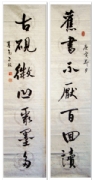 舊書不厭百回讀
古硯微凹聚墨多